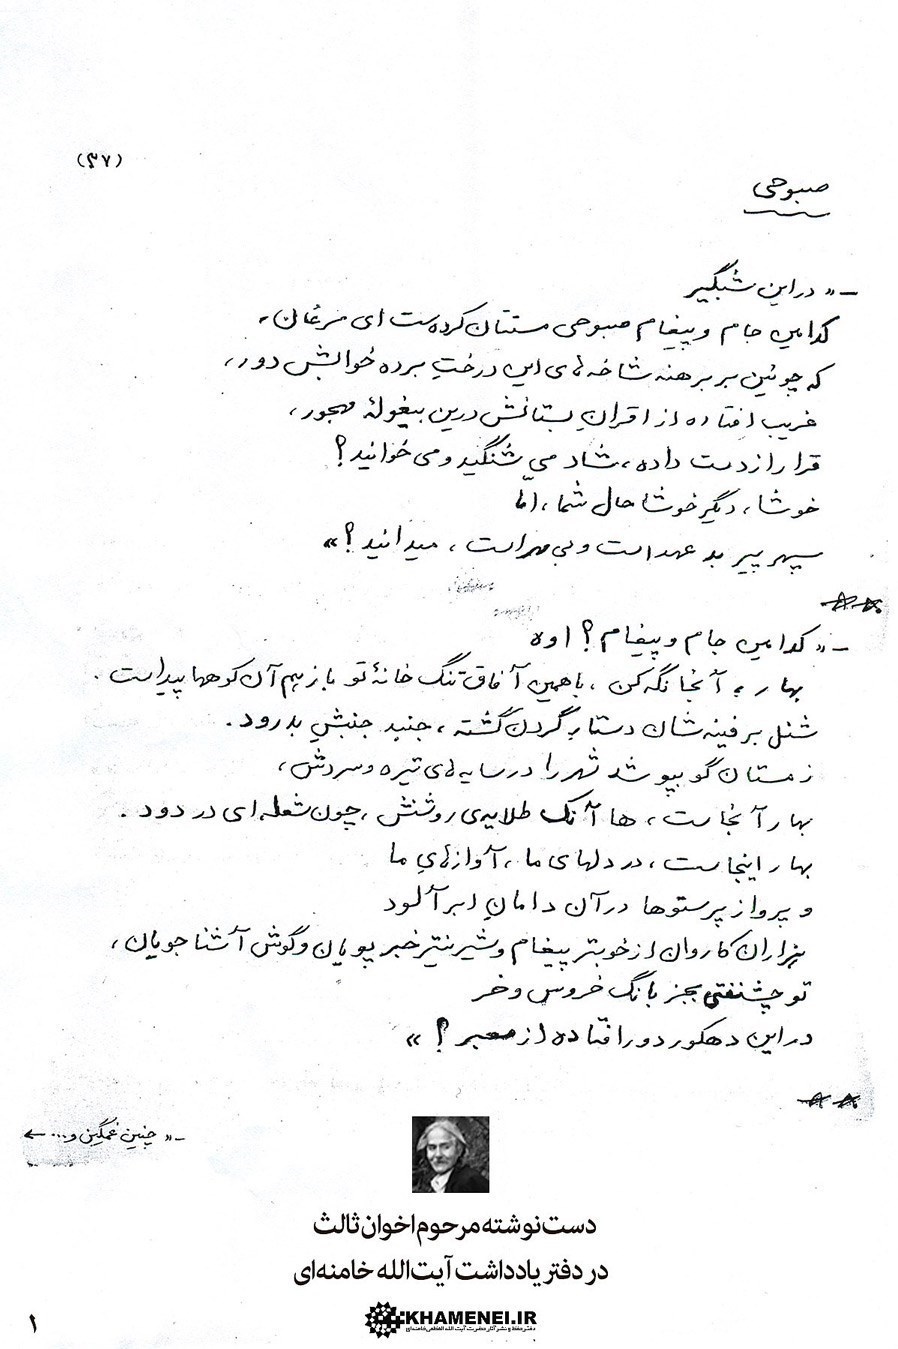 (۳۷)
صبوحی
ـ« در این شبگیر
کدامین جام و پیغام صبوحی مستتان کرده‌ست ای مرغان،
که چونین بر برهنه شاخه‌های این درختِ برده خوابش دور،
غریب افتاده از اقرانِ بستانش درین بیغولهٔ مهجور،
قرار از دست داده، شاد می‌شنگید و می‌خوانید؟
خوشا، دیگر خوشا حال شما، اما
سپهر پیر بد عهد است و بی مهر است، میدانید؟»
ـ« کدامین جام و پیغام؟ اوه
بهار، آنجا نگه کن، با همین آفاق تنگ خانهٔ تو باز هم آن کوهها پیداست.
شنل برفینه‌شان دستار گردن گشته، جنبد جنبشِ بدرود.
زمستان گو بپوشد شهر را در سایه‌های تیره و سردش،
بهار آنجاست، ها آنک طلایه‌ی روشنش، چون شعله‌ای در دود.
بهار اینجاست، در دلهای ما، آوازهای ما
و پرواز پرستوها در آن دامانِ ابر آلود
هزاران کاروان از خوبتر پیغام و شیرینتر خبر پویان و گوش آشنا جویان،
تو چشنفتی بجز بانگ خروس و خر
در این دهکور دور افتاده از معبر؟»
ـ« چنین غمگین و... ←
دست‌نوشته مرحوم اخوان ثالث
در دفتر یادداشت آیت‌الله خامنه‌ای
KHAMENEI.IR
دفتر حفظ و نشر آثار حضرت آیت الله العظمی خامنه‌ای
۱